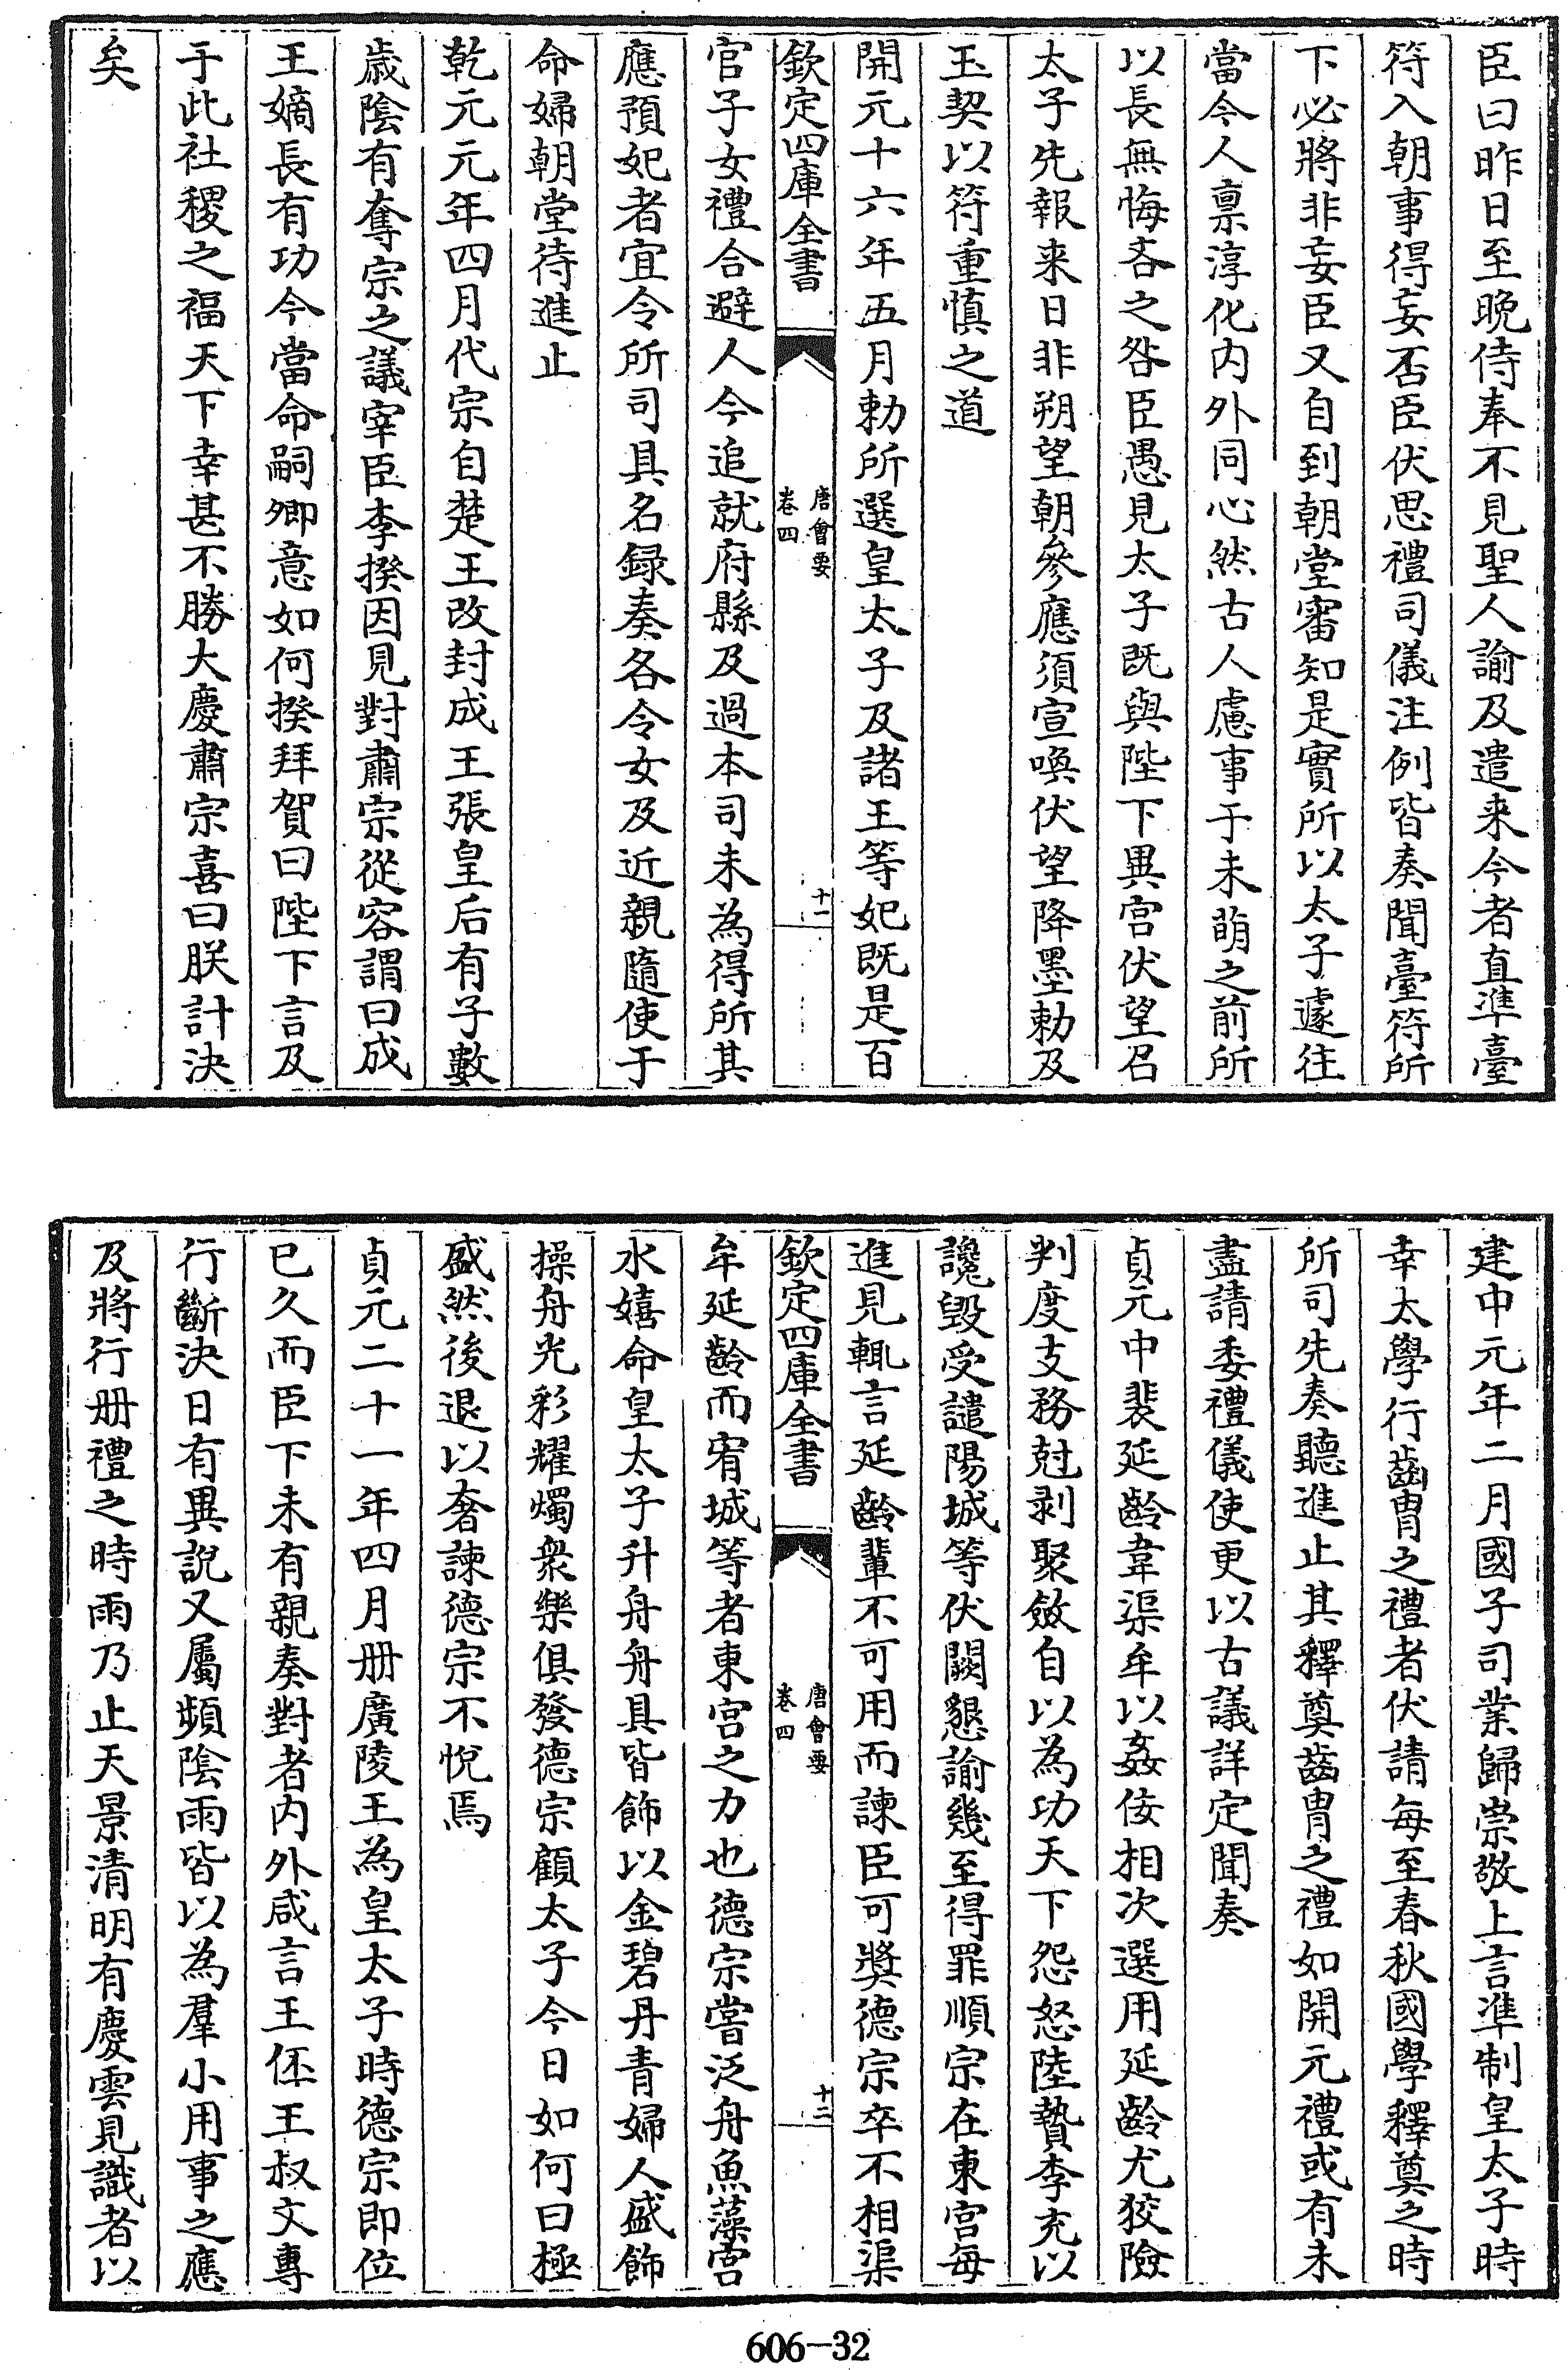 臣曰昨日至晚侍奉不見聖人諭及遣来今者直準臺
符入朝事得妄否臣伏思禮司儀注例皆奏聞臺符所
下必將非妄臣又自到朝堂審知是實所以太子遽往
當今人禀淳化内外同心然古人慮事于未萌之前所
以長無悔吝之咎臣愚見太子既與陛下異宫伏望召
太子先報来日非朔望朝參應須宣喚伏望降墨勅及
玉契以符重慎之道
開元十六年五月勅所選皇太子及諸王等妃既是百
欽定四庫全書
唐會要
卷四
十一
官子女禮合避人今追就府縣及過本司未為得所其
應預妃者宜令所司具名録奏各令女及近親隨使于
命婦朝堂待進止
乾元元年四月代宗自楚王改封成王張皇后有子數
歲陰有奪宗之議宰臣李揆因見對肅宗從容謂曰成
王嫡長有功今當命嗣卿意如何揆拜賀曰陛下言及
于此社稷之福天下幸甚不勝大慶肅宗喜曰朕計決
矣
建中元年二月國子司業歸崇敬上言準制皇太子時
幸太學行齒胄之禮者伏請每至春秋國學釋奠之時
所司先奏聽進止其釋奠齒胄之禮如開元禮或有未
盡請委禮儀使更以古議詳定聞奏
貞元中裴延齡韋渠牟以姦佞相次選用延齡尤狡險
判度支務尅剥聚斂自以為功天下怨怒陸贄李充以
讒毁受譴陽城等伏闕懇諭幾至得罪順宗在東宫每
進見輒言延齡輩不可用而諫臣可奬德宗卒不相渠
欽定四庫全書
唐會要
卷四
十二
牟延齡而宥城等者東宫之力也德宗嘗泛舟魚藻宫
水嬉命皇太子升舟舟具皆飾以金碧丹青婦人盛飾
操舟光彩耀燭衆樂俱發德宗顧太子今日如何曰極
盛然後退以奢諫德宗不悅焉
貞元二十一年四月册廣陵王為皇太子時德宗即位
已久而臣下未有親奏對者内外咸言王伾王叔文專
行斷決日有異說又屬頻陰雨皆以為羣小用事之應
及將行册禮之時雨乃止天景清明有慶雲見識者以
606-32